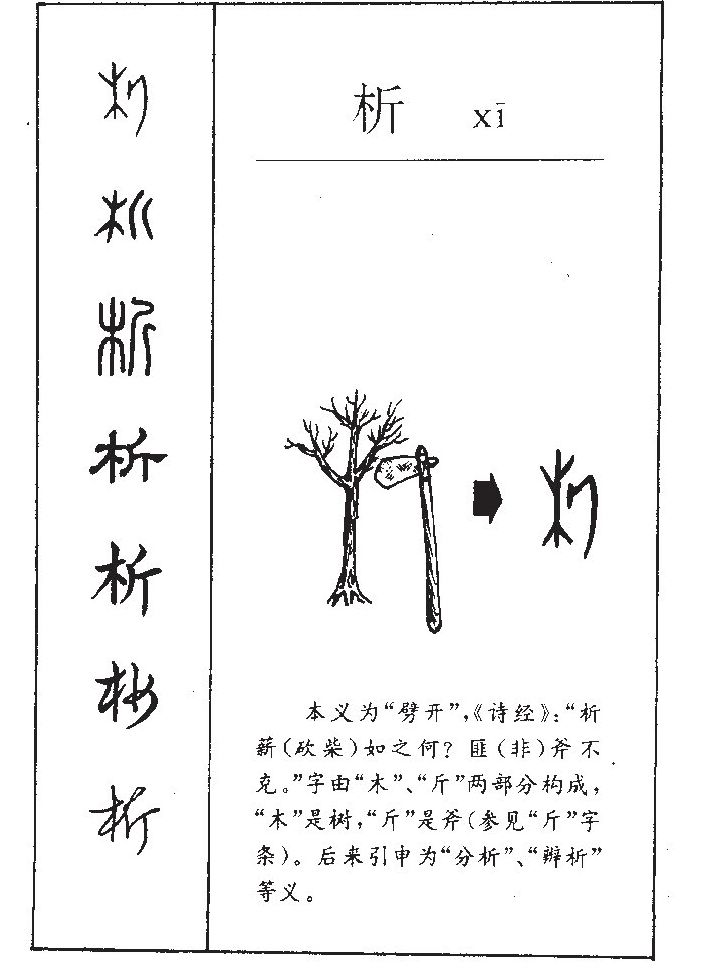 析 xī
本义为“劈开”，《诗经》：“析
薪（砍柴）如之何？匪（非）斧不
克。”字由“木”、“斤”两部分构成，
“木”是树，“斤”是斧（参见“斤”字
条）。后来引申为“分析”、“辨析”
等义。
析
析
析
析
析
析
析